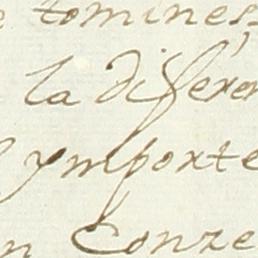 tomines
la diferen
ymporte
n Conze